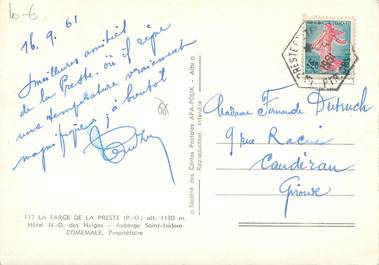 10 €
16.9.61
meilleures amitiés
de la Preste. où il règne
une température vraiment
magnifique. à bientôt
117 LA FARGE DE LA PRESTE (P.-O.) alt. 1130 m.
Hôtel N.-D. des Neiges - Auberge Saint-Isidore
COMEMALE, Propriétaire
Société des Cartes Postales APA-POUX - Albi
Reproduction interdite
LA PRESTE
1961
Madame Fernande Dutruch
9 rue Racine
Caudéran
Gironde